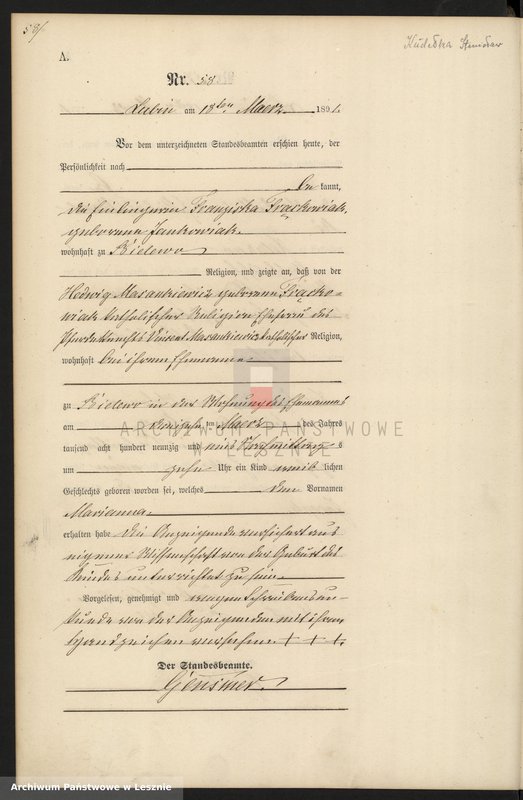 58/
Kudelka Stanislaw
A.
Nr. 58
Lubin am 18ten Maerz 1891.
Vor dem unterzeichneten Standesbeamten erschien heute, der
Persönlichkeit nach
be kannt,
die Einliegerin Franziska Frąckowiak,
geborene Jankowiak
wohnhaft zu Bielewo
Religion, und zeigte an, daß von der
Hedwig Masankiewicz geborene Frącko-
wiak katholischer Religion Ehefrau des
Pferdeknechts Vincent Masankiewicz katholischer Religion,
wohnhaft bei ihrem Ehemanne
zu Bielewo in der Wohnung des Ehemannes
am ten Maerz des Jahres
tausend acht hundert neunzig und eins Vormittags
um zehn Uhr ein Kind weib lichen
Geschlechts geboren worden sei, welches den Vornamen
Marianna
erhalten habe. Die Anzeigende versichert aus
eigener Wissenschaft von der Geburt des
Kindes unterrichtet zu sein.
Vorgelesen, genehmigt und wegen Schreibensun-
kunde von der Anzeigenden mit ihrem
Handzeichen versehen. + + +
Der Standesbeamte.
Gensmer
ARCHIWUM PAŃSTWOWE
W LESZNIE
Archiwum Państwowe w Lesznie